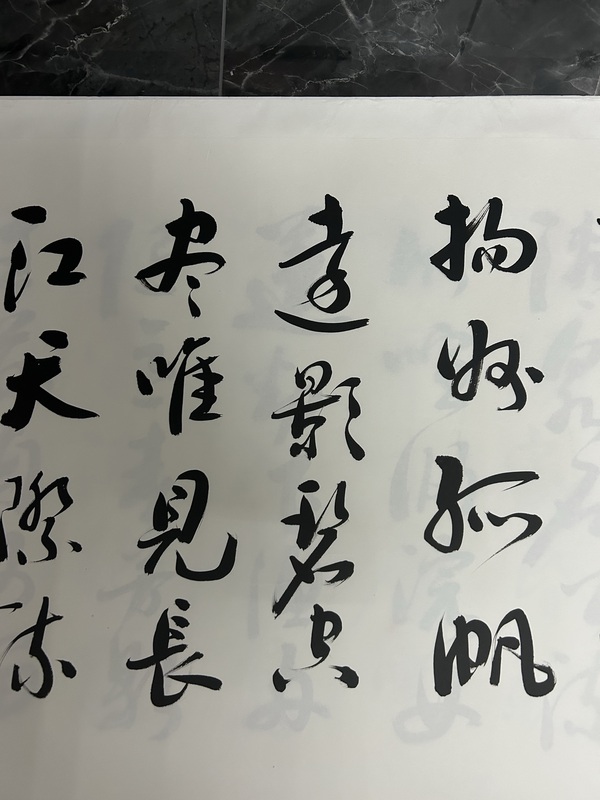 揚州孤帆
遠影碧空
尽唯見長
江天際流